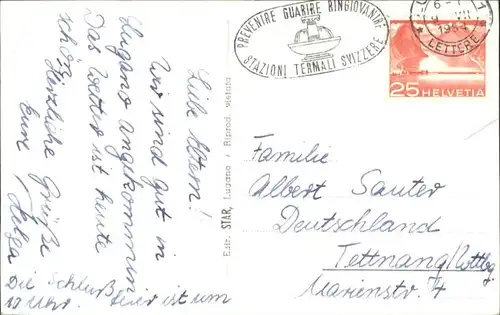 Liebe Eltern!
Wir sind gut in
Lugano angekommen
Das Wetter ist heute
schön. Herzliche Grüße
Eure Helga
Die Schlußfeier ist um
10 Uhr.
Edit. STAR, Lugano / Riprod. vietata
PREVENIRE GUARIRE RINGIOVANIRE
STAZIONI TERMALI SVIZZERE
LETTERE
25 HELVETIA
Familie
Albert Sauter
Deutschland
Tettnang/Wttbg.
Marienstr. 4